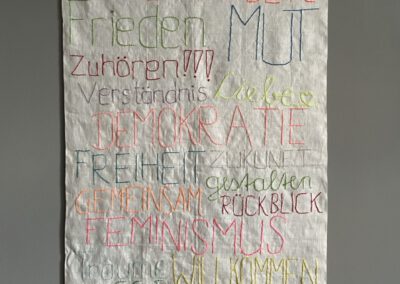 Frieden MUT
Zuhören!!!
Verständnis Liebe
DEMOKRATIE
FREIHEIT ZUKUNFT
GEMEINSAM gestalten
RÜCKBLICK
FEMINISMUS
Träume WILLKOMMEN